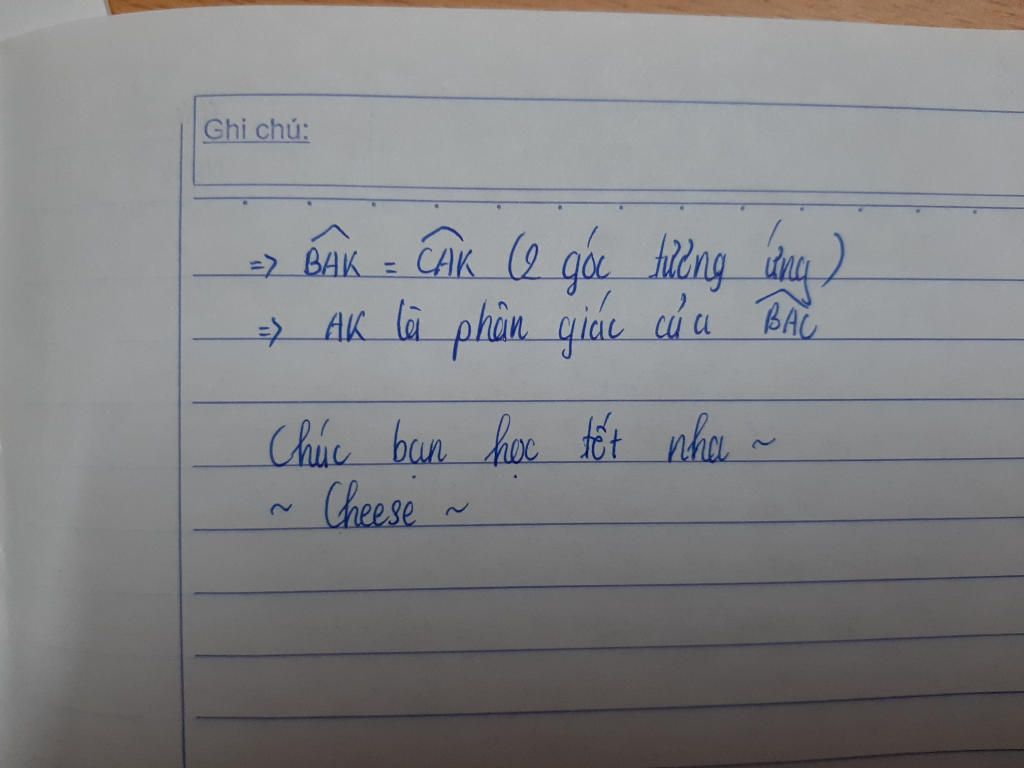 Ghi chú:
=> \widehat{BAK} = \widehat{CAK} (2 góc tương ứng)
=> AK là phân giác của \widehat{BAC}
Chúc bạn học tốt nha ~
~ Cheese ~